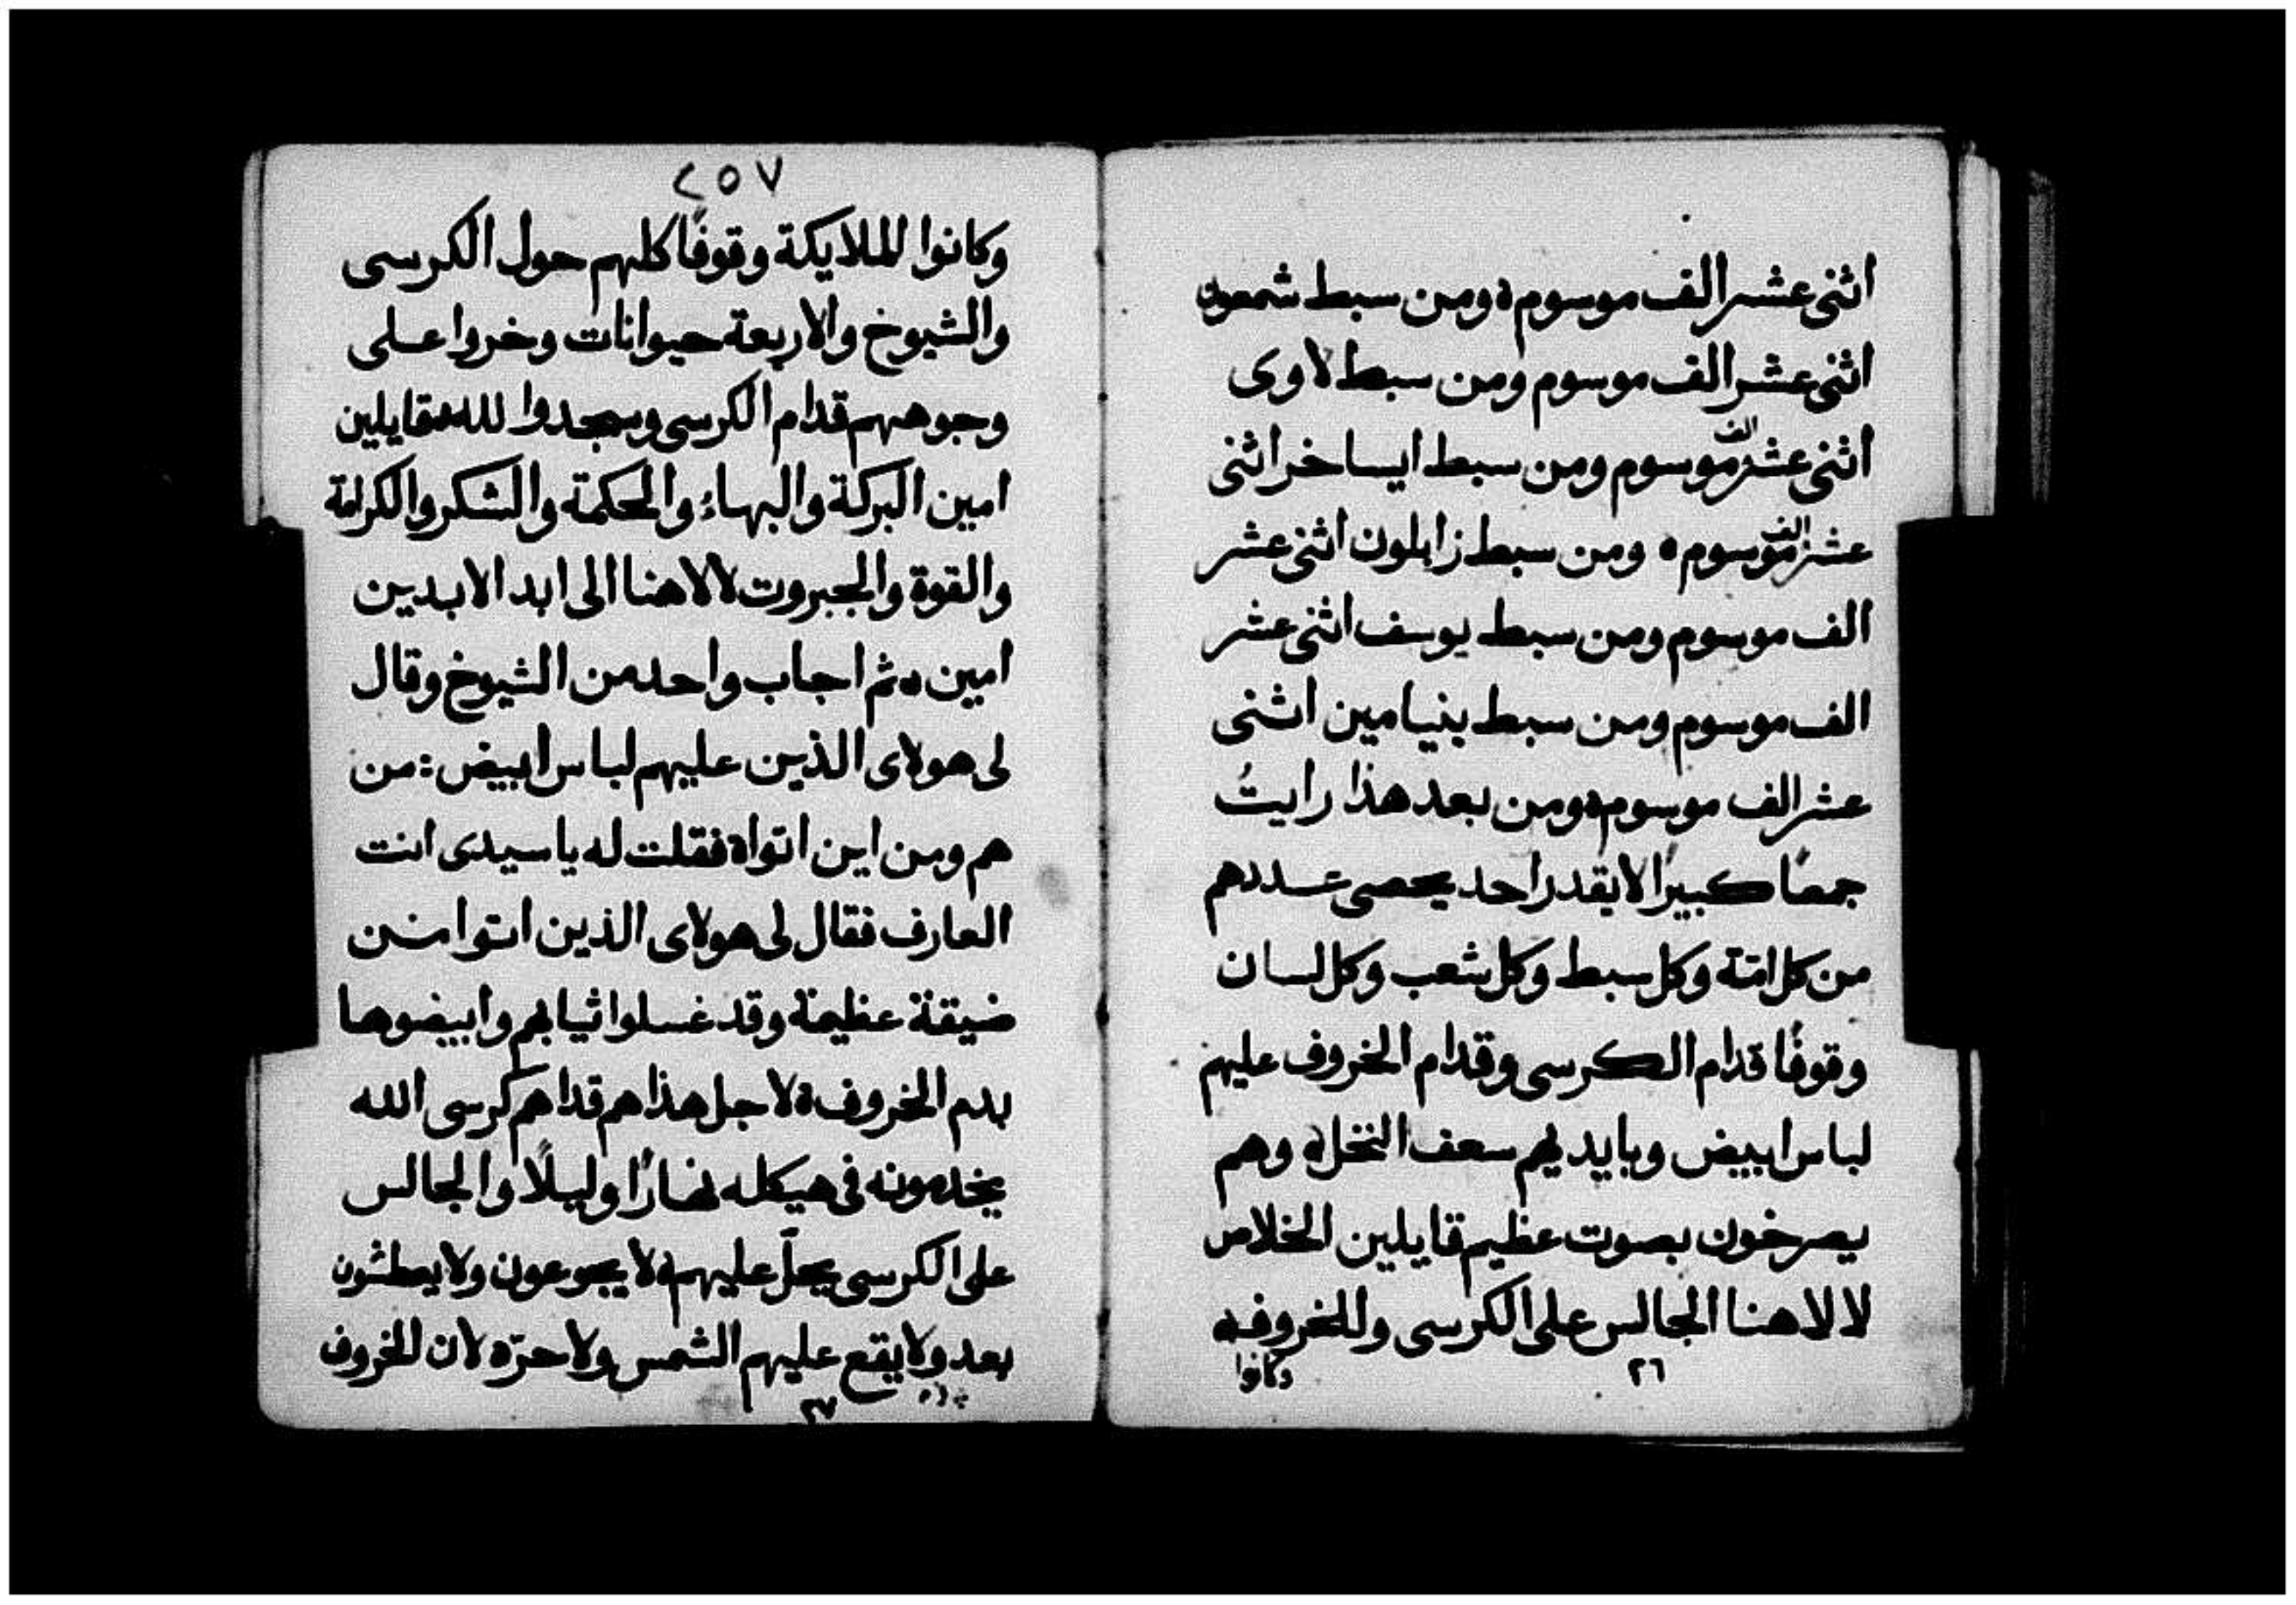 اثنى عشر الف موسوم ٥ ومن سبط شمعون
اثنى عشر الف موسوم ومن سبط لاوى
اثنى عشر الف موسوم ومن سبط ايساخر اثنى
عشر الف موسوم ٥ ومن سبط زابلون اثنى عشر
الف موسوم ومن سبط يوسف اثنى عشر
الف موسوم ومن سبط بنيامين اثنى
عشر الف موسوم ٥ ومن بعد هذا رايتُ
جمعًا كبيرًا لا يقدر احد يحصى عددهم
من كل امة وكل سبط وكل شعب وكل لسان
وقوفًا قدام الكرسى وقدام الخروف عليهم
لباس ابيض وبايديهم سعف النخل ٥ وهم
يصرخون بصوت عظيم قايلين الخلاص
لالاهنا الجالس على الكرسى وللخروف ٥
٢٦
وكانوا
٢٥٧
وكانوا الملايكة وقوفًا كلهم حول الكرسى
والشيوخ والاربعة حيوانات وخروا على
وجوههم قدام الكرسى وسجدوا لله قايلين
امين البركة والبهاء والحكمة والشكر والكرامة
والقوة والجبروت لالاهنا الى ابد الابدين
امين ٥ ثم اجاب واحد من الشيوخ وقال
لى هولاى الذين عليهم لباس ابيض : من
هم ومن اين اتوا ٥ فقلت له ياسيدى انت
العارف فقال لى هولاى الذين اتوا من
ضيقة عظيمة وقد غسلوا ثيابهم وابيضوها
بدم الخروف ٥ لاجل هذا هم قدام كرسى الله
يخدمونه فى هيكله نهارًا وليلًا والجالس
على الكرسى يحلّ عليهم ٥ لا يجوعون ولا يعطشون
بعد ولا يقع عليهم الشمس ولا حرّ ٥ لان الخروف
٢٧